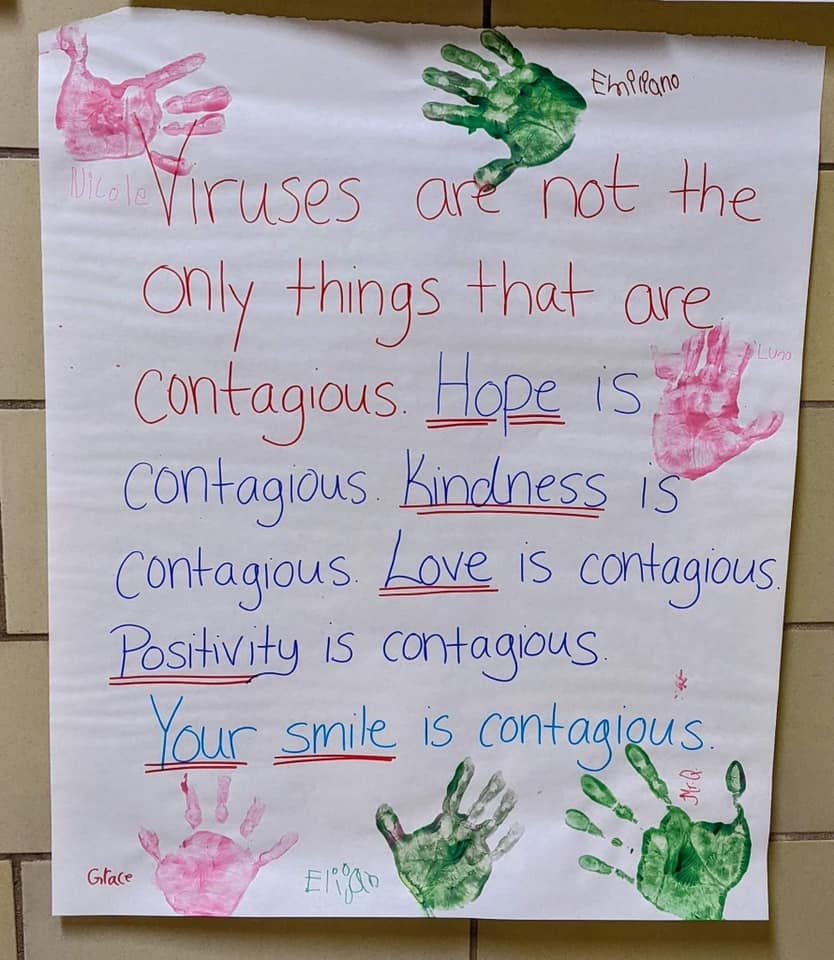 Emiliano
Nicole
Viruses are not the
only things that are
Luna
contagious. Hope is
contagious. Kindness is
contagious. Love is contagious.
Positivity is contagious.
Your smile is contagious.
Mr. Q.
Grace
Elijah